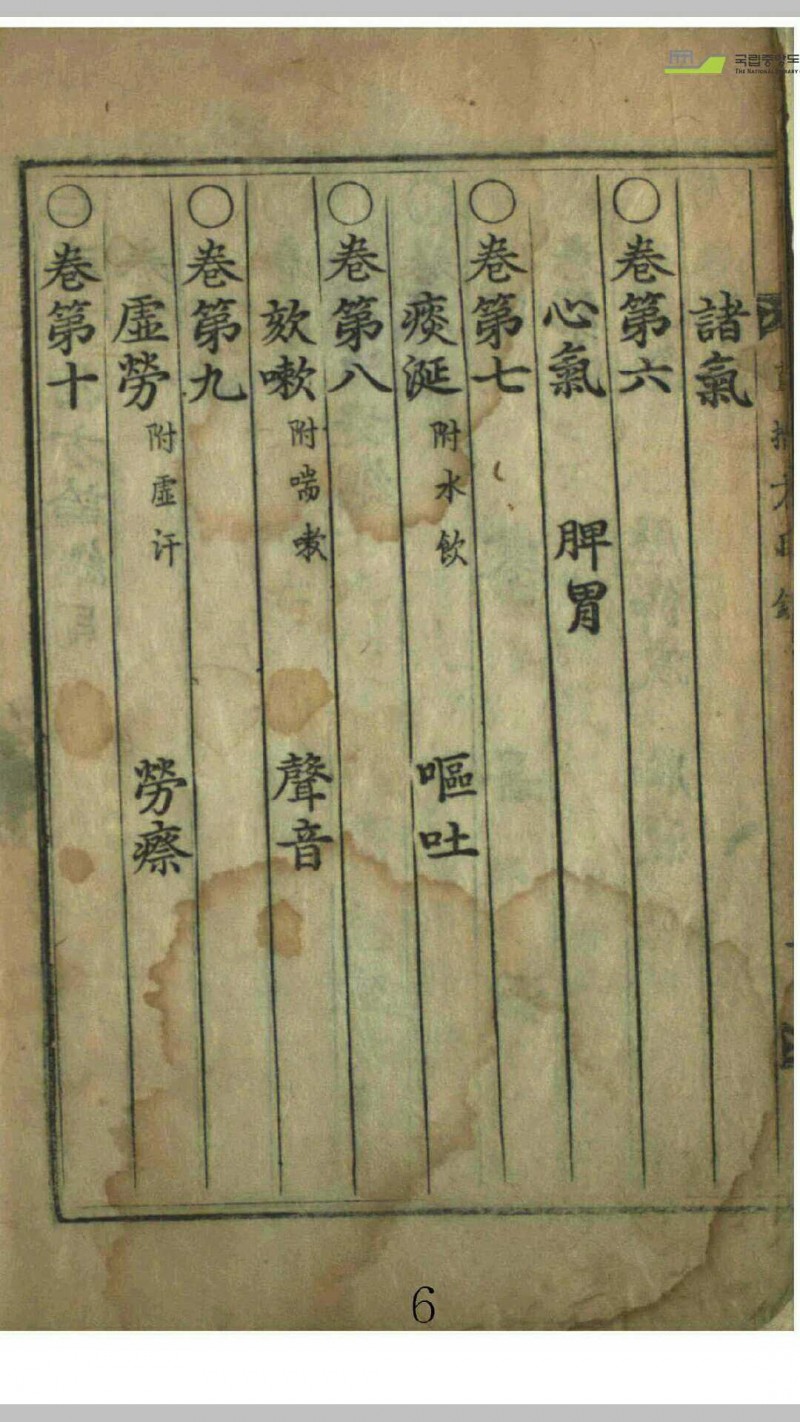 諸氣
○卷第六
心氣 脾胃
○卷第七
痰涎 附水飲 嘔吐
○卷第八
欬嗽 附喘嗽 聲音
○卷第九
虛勞 附虛汗 勞瘵
○卷第十
6